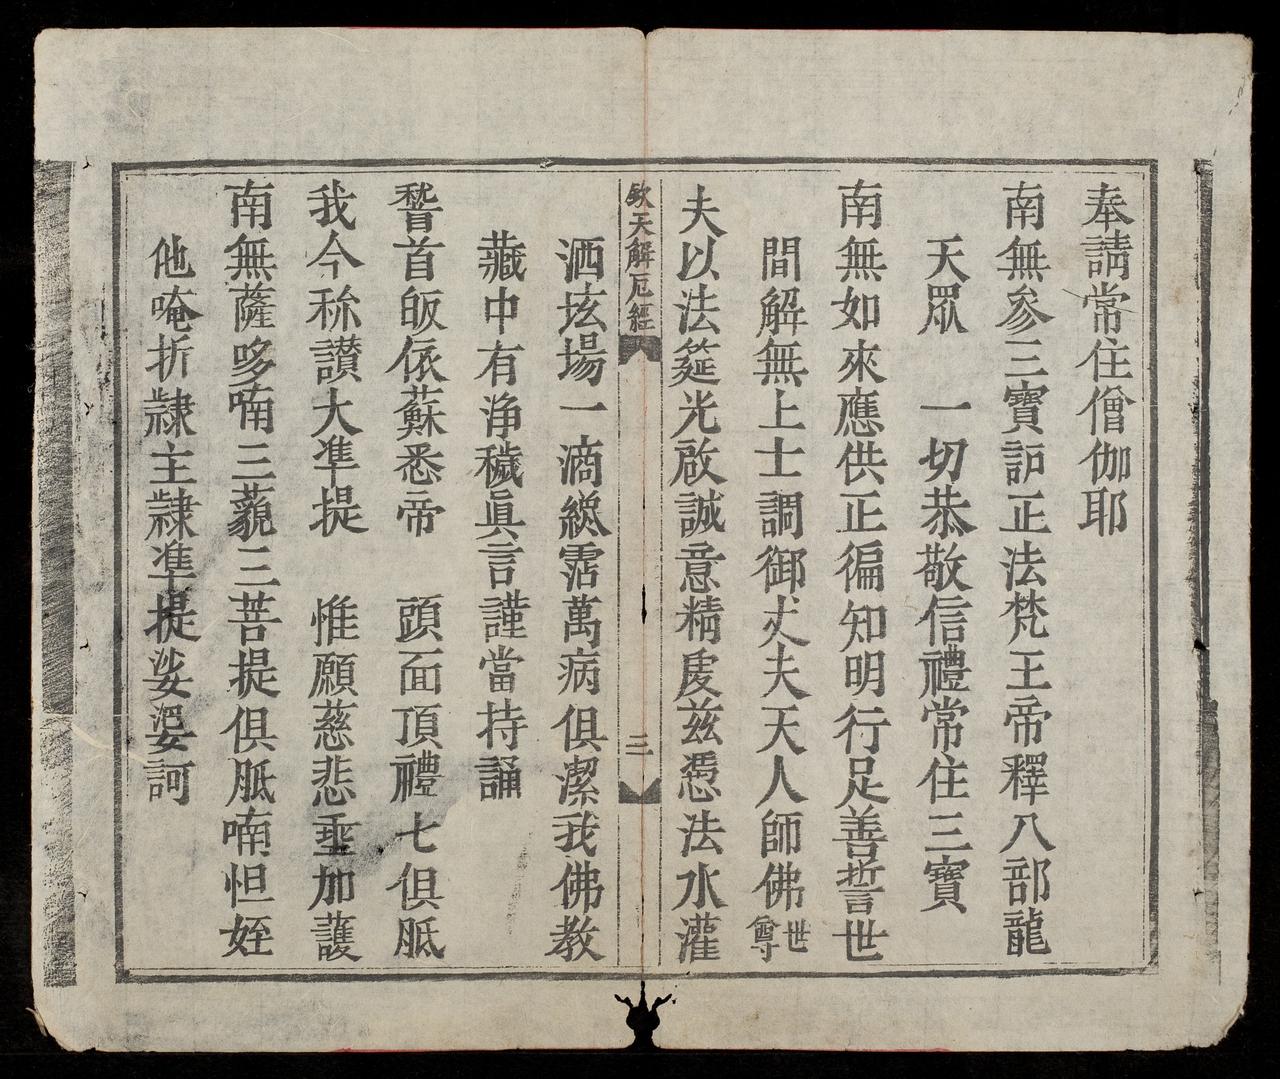 奉請常住僧伽耶
南無參三寶訶正法梵王帝釋八部龍
天眾　一切恭敬信禮常住三寶
南無如來應供正徧知明行足善誓世
間解無上士調御丈夫天人師佛世尊
夫以法筵光啟誠意精虔茲憑法水灌
欽天解厄經
三
洒垓場一滴纔霑萬病俱潔我佛教
藏中有淨穢眞言謹當持誦
稽首皈依蘇悉帝　頭面頂禮七俱胝
我今称讃大凖提　惟願慈悲垂加護
南無薩哆喃三藐三菩提俱胝喃怛姪
他唵折隸主隸凖提娑婆訶